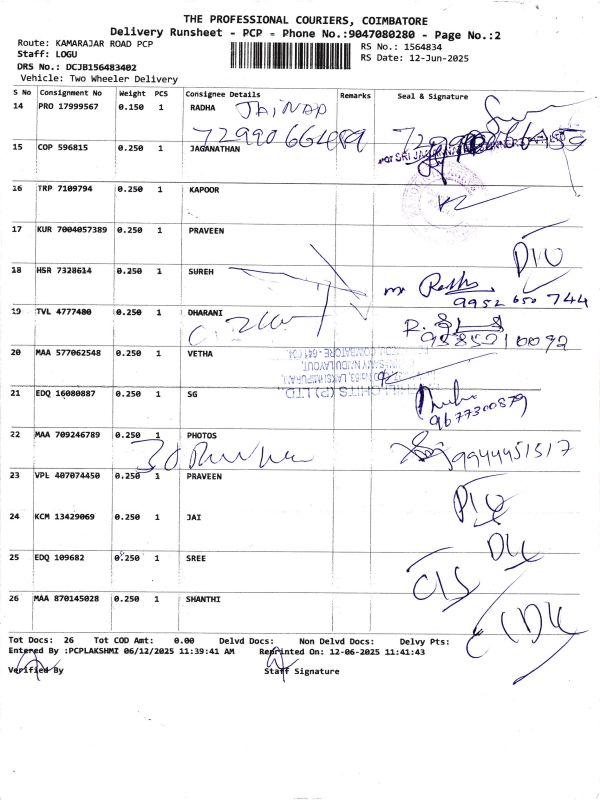 THE PROFESSIONAL COURIERS, COIMBATORE
Delivery Runsheet - PCP - Phone No.:9047080280 - Page No.:2
Route: KAMARAJAR ROAD PCP
RS No.: 1564834
Staff: LOGU
RS Date: 12-Jun-2025
DRS No.: DCJB156483402
Vehicle: Two Wheeler Delivery
S No Consignment No Weight PCS Consignee Details Remarks Seal & Signature
14 PRO 17999567 0.150 1 RADHA
15 COP 596815 0.250 1 JAGANATHAN
16 TRP 7109794 0.250 1 KAPOOR
17 KUR 7004057389 0.250 1 PRAVEEN
18 HSR 7328614 0.250 1 SUREH
9952 650 744
19 TVL 4777480 0.250 1 DHARANI
20 MAA 577062548 0.250 1 VETHA
21 EDQ 16080887 0.250 1 SG
9677300879
22 MAA 709246789 0.250 1 PHOTOS
9944451517
23 VPL 407074450 0.250 1 PRAVEEN
24 KCM 13429069 0.250 1 JAI
25 EDQ 109682 0.250 1 SREE
26 MAA 870145028 0.250 1 SHANTHI
Tot Docs: 26 Tot COD Amt: 0.00 Delvd Docs: Non Delvd Docs: Delvy Pts:
Entered By :PCPLAKSHMI 06/12/2025 11:39:41 AM Reprinted On: 12-06-2025 11:41:43
Verified By Staff Signature